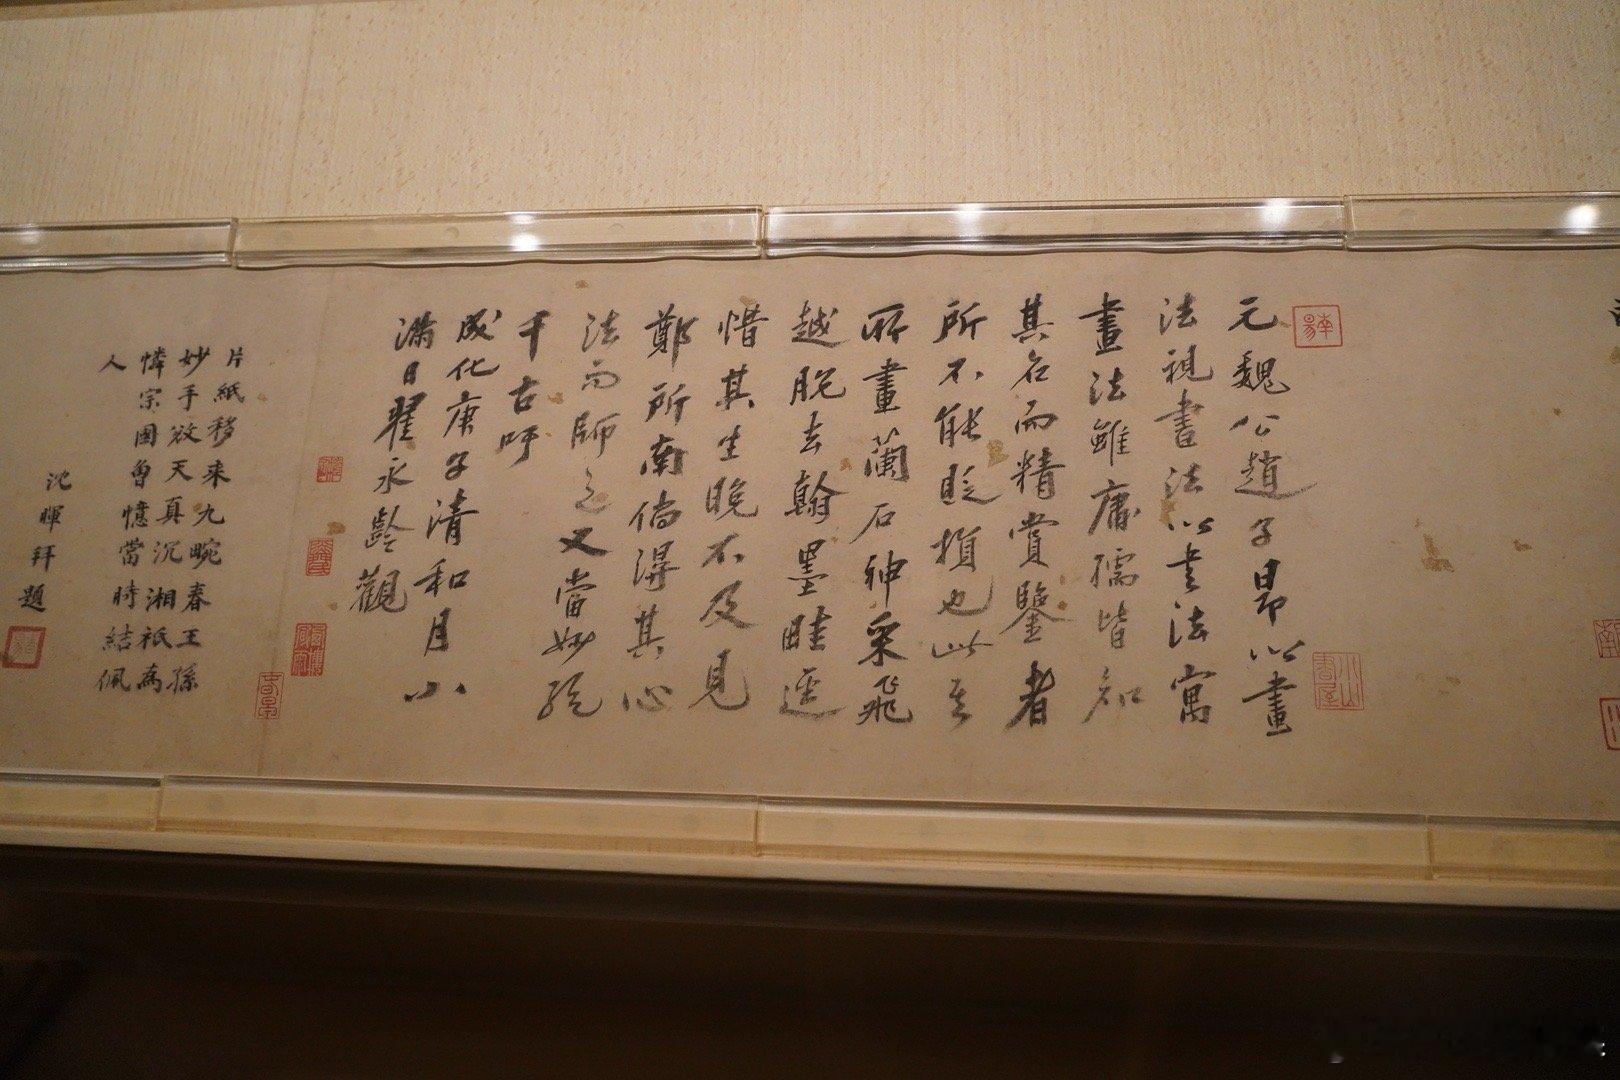 元魏公趙子昂以畫
法視書法以書法寓
畫法雖庸孺皆知
其名而精賞鑒者
所不能貶損也此其
所畫蘭石神采飛
越脫去翰墨畦逕
惜其生晚不及見
鄭所南倘得其心
法而師之又當妙絕
千古吁
成化庚子清和月小
滿日翟永齡觀
片紙移來九畹春王孫
妙手發天真沉湘祇為
憐宗國曾憶當時結佩
人
沈暉拜題